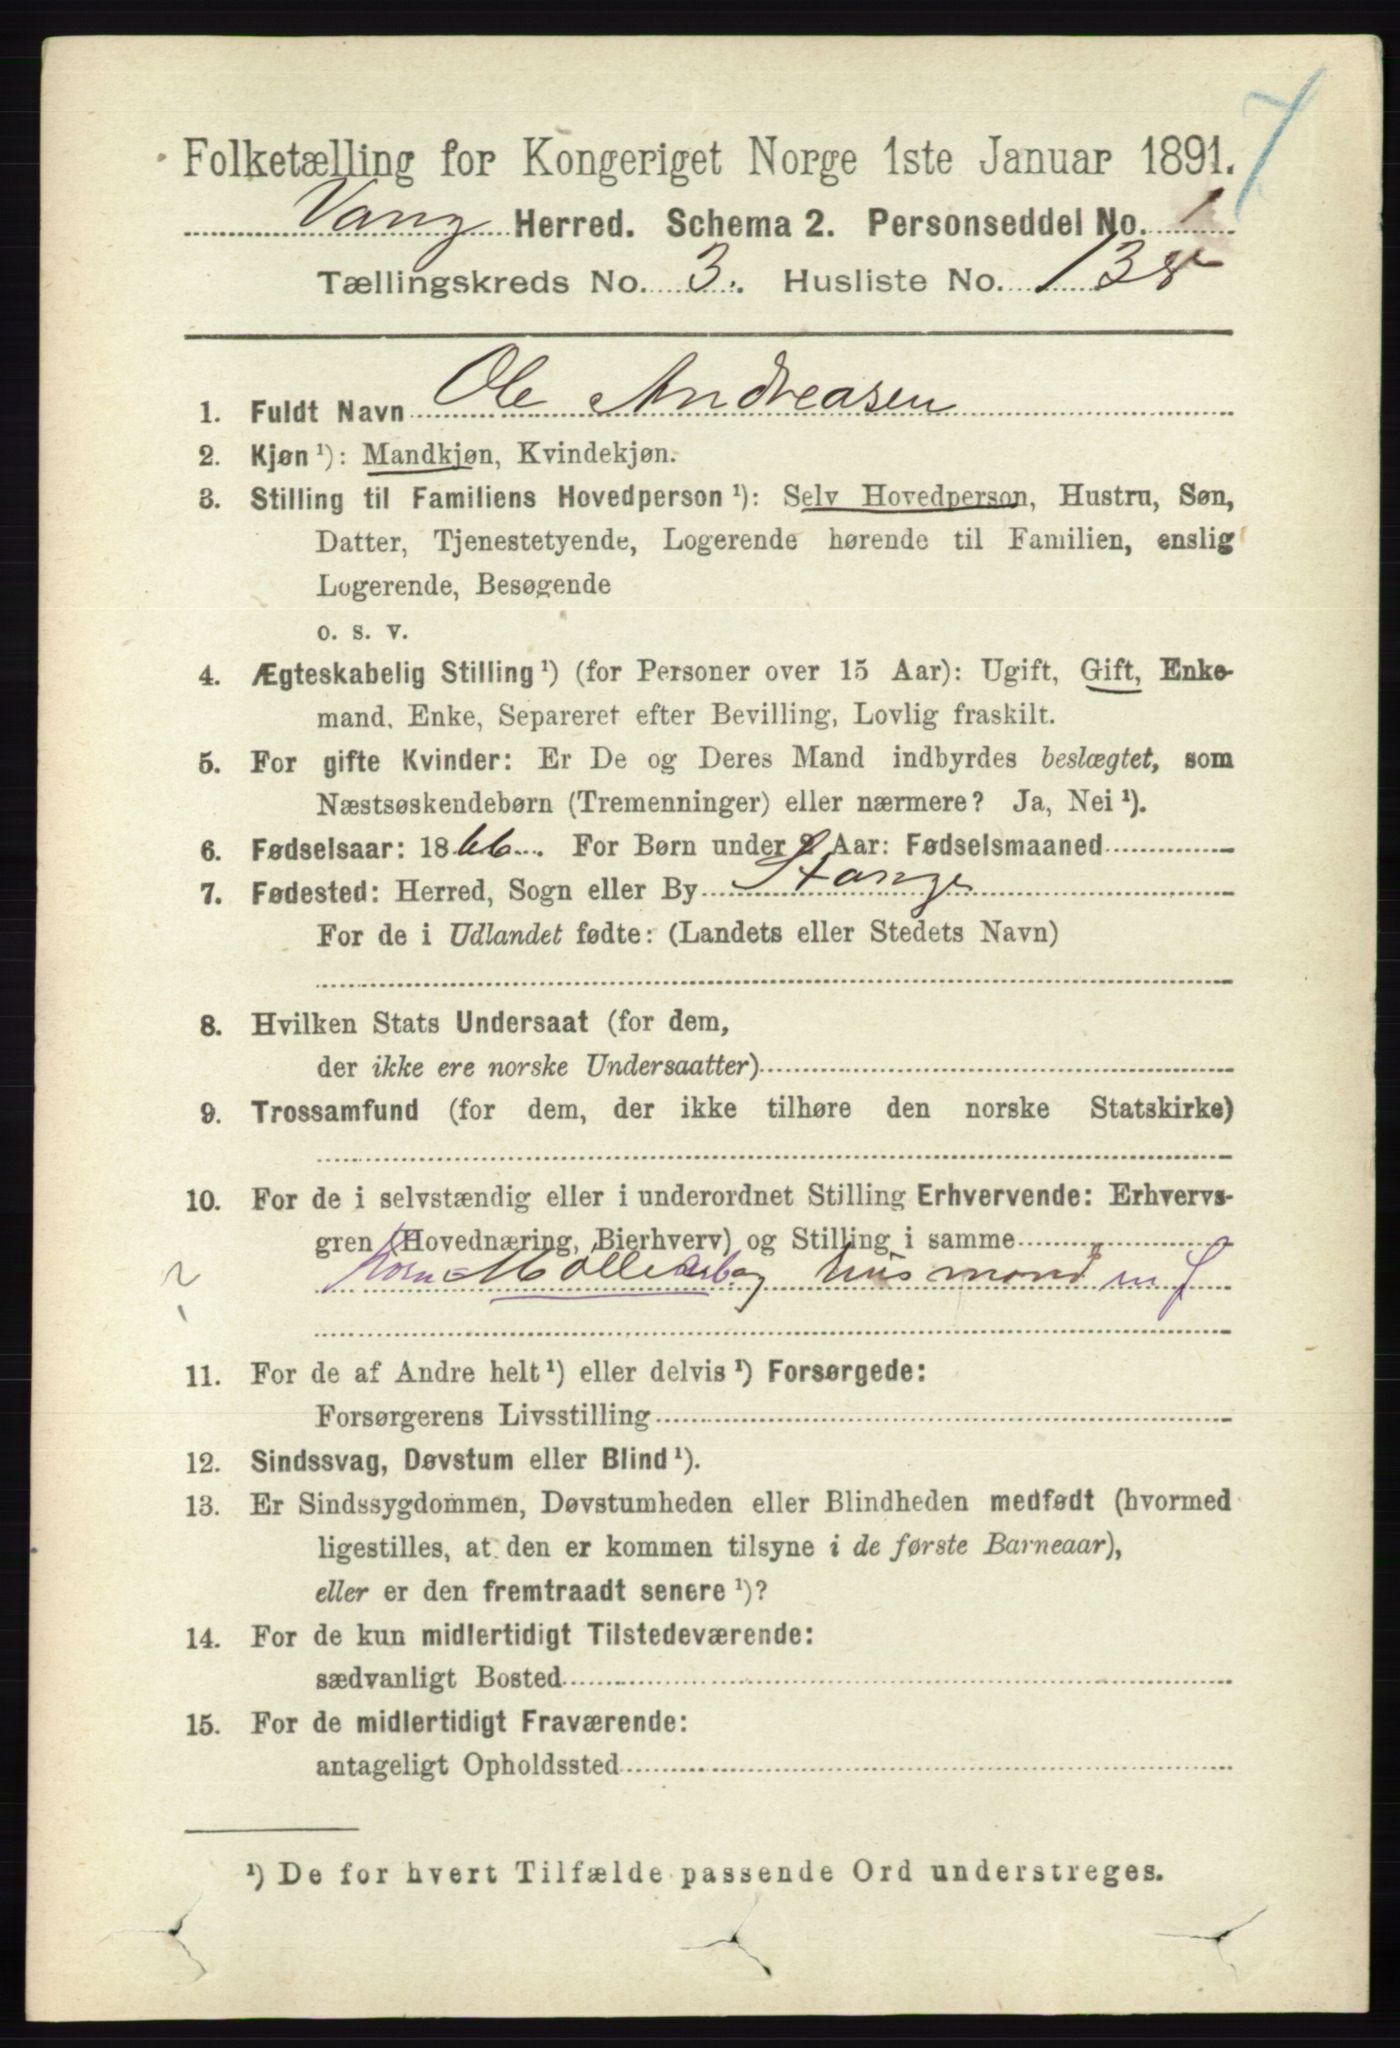 Folketælling for Kongeriget Norge 1ste Januar 1891.
Vang Herred. Schema 2. Personseddel No. 1
Tællingskreds No. 3. Husliste No. 138
1. Fuldt Navn Ole Andreasen
2. Kjøn ¹): Mandkjøn, Kvindekjøn.
3. Stilling til Familiens Hovedperson ¹): Selv Hovedperson, Hustru, Søn,
Datter, Tjenestetyende, Logerende hørende til Familien, enslig
Logerende, Besøgende
o. s. v.
4. Ægteskabelig Stilling ¹) (for Personer over 15 Aar): Ugift, Gift, Enke-
mand, Enke, Separeret efter Bevilling, Lovlig fraskilt.
5. For gifte Kvinder: Er De og Deres Mand indbyrdes beslægtet, som
Næstsøskendebørn (Tremenninger) eller nærmere? Ja, Nei ¹).
6. Fødselsaar: 1866. For Børn under 2 Aar: Fødselsmaaned
7. Fødested: Herred, Sogn eller By Stange
For de i Udlandet fødte: (Landets eller Stedets Navn)
8. Hvilken Stats Undersaat (for dem,
der ikke ere norske Undersaatter)
9. Trossamfund (for dem, der ikke tilhøre den norske Statskirke)
10. For de i selvstændig eller i underordnet Stilling Erhvervende: Erhvervs-
gren (Hovednæring, Bierhverv) og Stilling i samme
Korn= Møllearb. og husmand m J
11. For de af Andre helt ¹) eller delvis ¹) Forsørgede:
Forsørgerens Livsstilling
12. Sindssvag, Døvstum eller Blind ¹).
13. Er Sindssygdommen, Døvstumheden eller Blindheden medfødt (hvormed
ligestilles, at den er kommen tilsyne i de første Barneaar),
eller er den fremtraadt senere ¹)?
14. For de kun midlertidigt Tilstedeværende:
sædvanligt Bosted
15. For de midlertidigt Fraværende:
antageligt Opholdssted
¹) De for hvert Tilfælde passende Ord understreges.